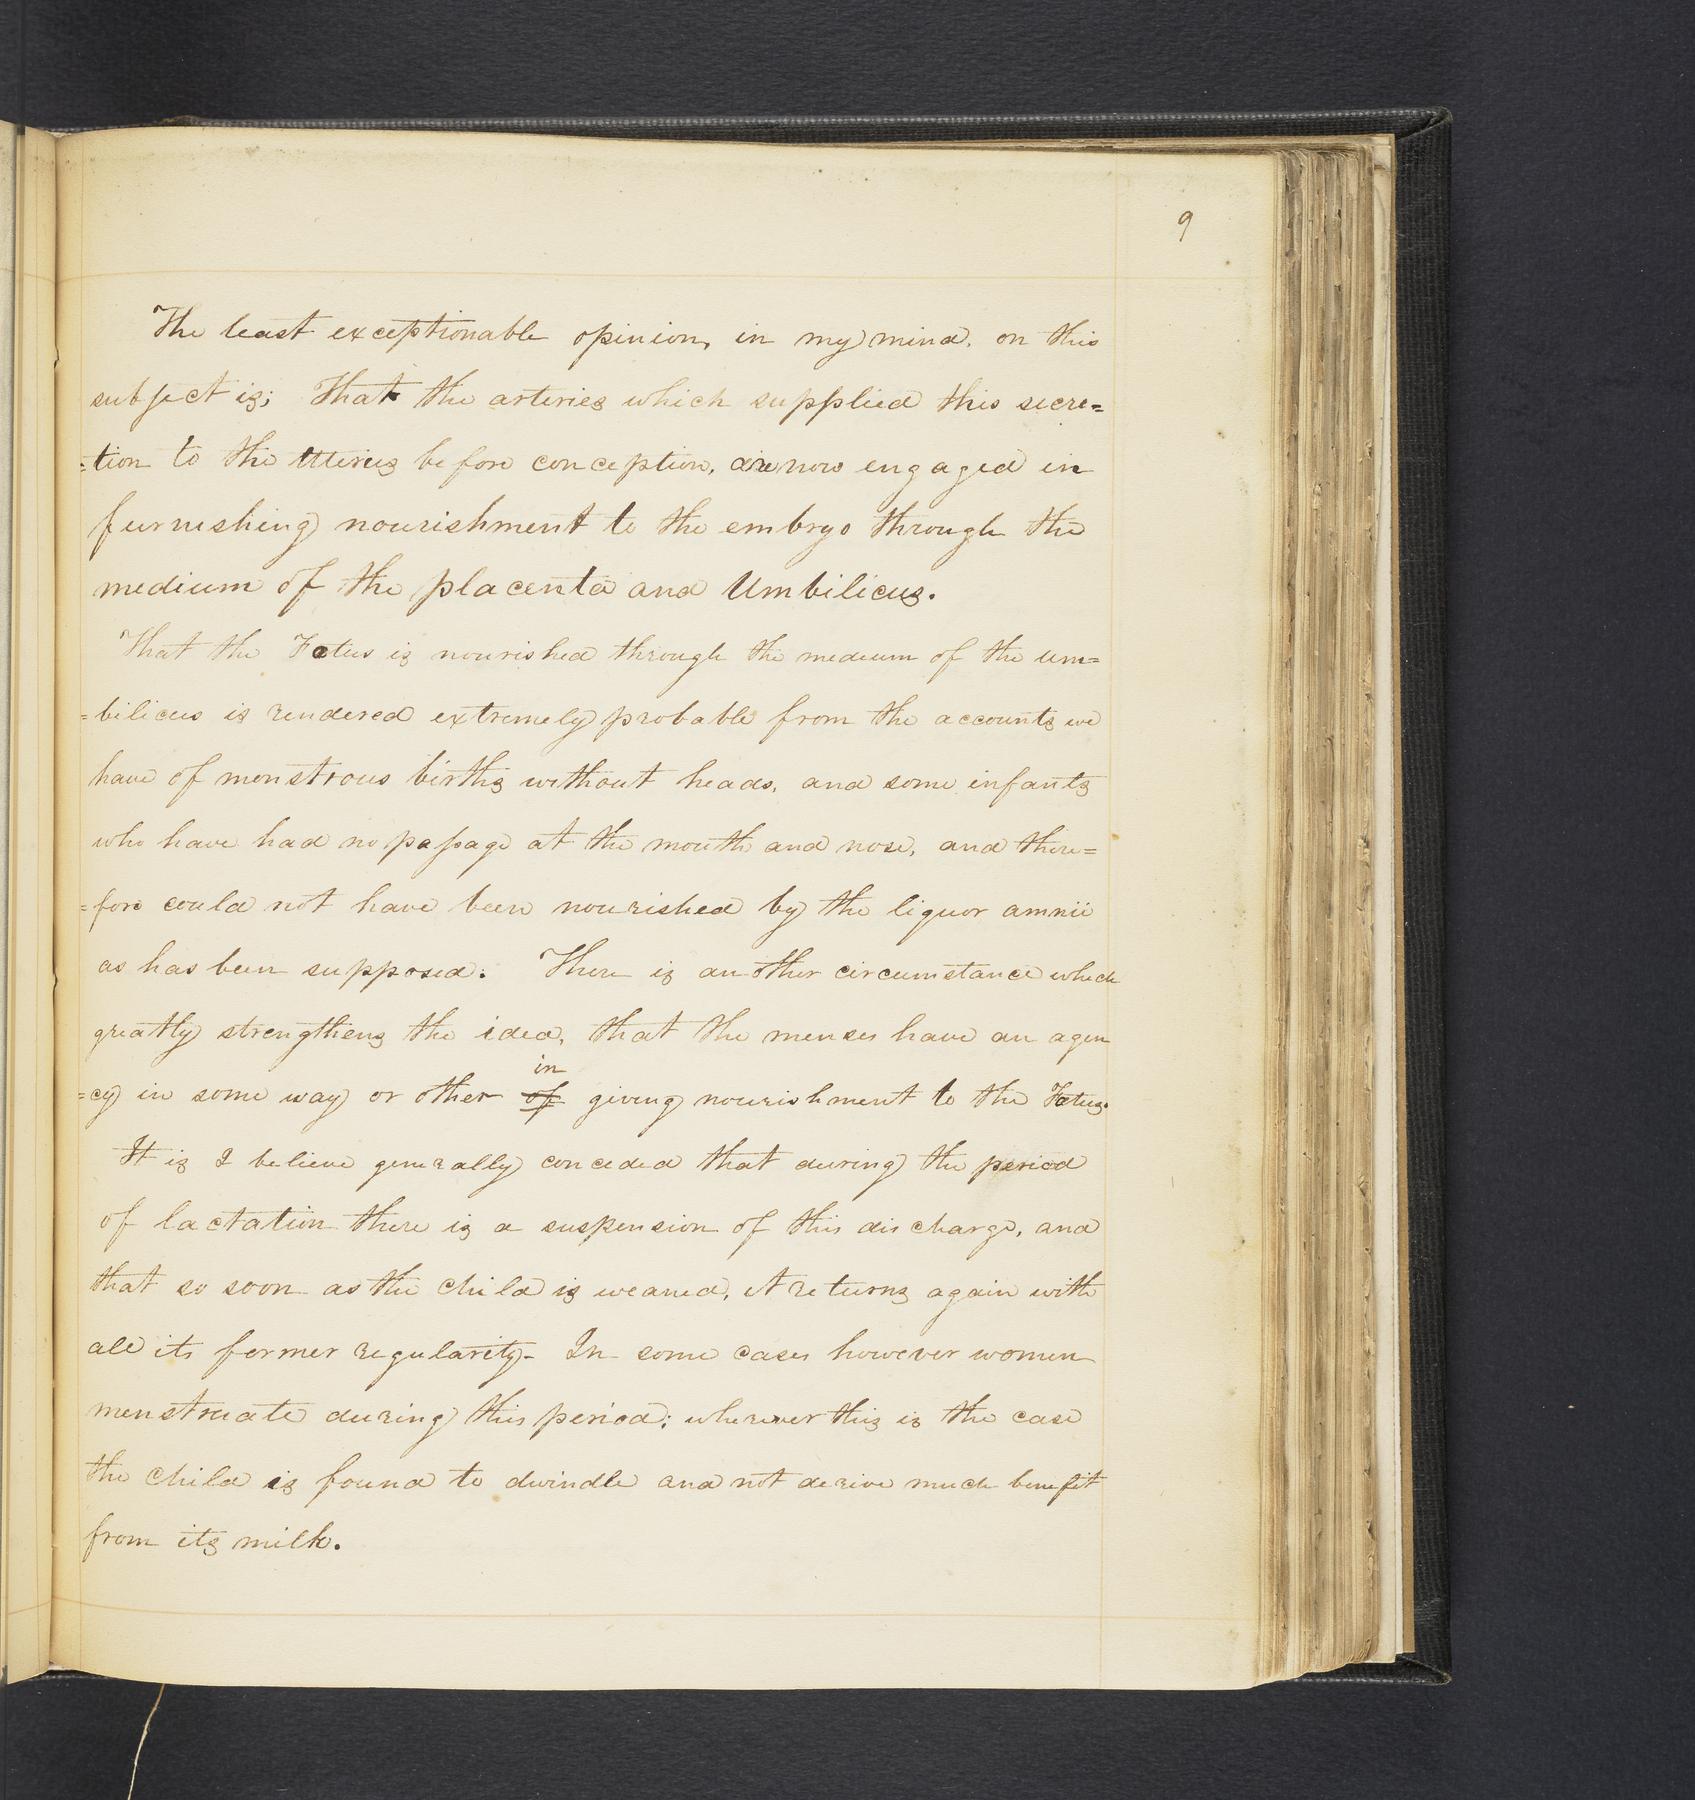 9
The least exceptionable opinion, in my mind, on this
subject is; That the arteries which supplied this secre=
=tion to the Uterus before conception, are now engaged in
furnishing nourishment to the embryo through the
medium of the placenta and Umbilicus.
That the Fœtus is nourished through the medium of the um=
=bilicus is rendered extremely probable from the accounts we
have of monstrous births without heads, and some infants
who have had no passage at the mouth and nose, and there=
=fore could not have been nourished by the liquor amnii
as has been supposed. There is another circumstance which
greatly strengthens the idea, that the menses have an agen
in
=cy in some way or other of giving nourishment to the Fœtus.
It is I believe generally conceded that during the period
of lactation there is a suspension of this discharge, and
that so soon as the child is weaned, it returns again with
all its former regularity- In some cases however women
menstruate during this period; wherever this is the case
the child is found to dwindle and not derive much benefit
from its milk.